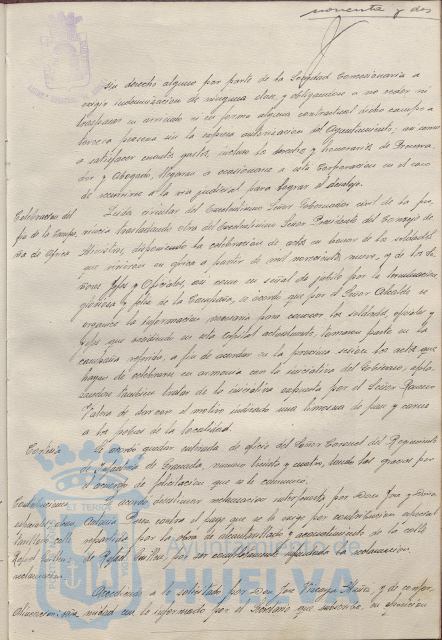 noventa y dos
sin derecho alguno por parte de la Sociedad Concesionaria a
exigir indemnizacion de ninguna clase, y obligandose a no ceder ni
traspasar en arriendo ni en forma alguna contractual dicho campo a
tercera persona sin la expresa autorizacion del Ayuntamiento; asi como
a satisfacer cuantos gastos, incluso los derechos y honorarios de Procura-
dor y Abogado, llegaran a ocasionarse a esta Corporacion en el caso
de recurrirse a la via judicial para lograr el desalojo.
Celebracion del
fin de la Campa-
ña de Africa
Leida circular del Excelentisimo Señor Gobernador civil de la pro-
vincia trasladando otra del Excelentisimo Señor Presidente del Consejo de
Ministros, disponiendo la celebracion de actos en honor de los soldados
que sirvieron en Africa a partir de mil novecientos nueve, y de los Se-
ñores Jefes y Oficiales, asi como en señal de jubilo por la terminacion
gloriosa y feliz de la Campaña, se acordó que por el Señor Alcalde se
organice la informacion necesaria para conocer los soldados, oficiales y
Jefes que residiendo en esta capital actualmente, tomaron parte en la
campaña referida, a fin de acordar en la proxima sesion los actos que
hayan de celebrarse en armonia con la iniciativa del Gobierno, apla-
zandose tambien tratar de la iniciativa expuesta por el Señor
de dar con el motivo indicado una limosna de pan y carne
a los pobres de la localidad.
Cortesia
Se acordó quedar enterada de oficio del Señor Coronel del Regimiento
de Infanteria de Granada, numero treinta y cuatro, dando las gracias por
el acuerdo de felicitacion que se le comunicó.
Contribuciones
Se acordó desestimar reclamacion interpuesta por Don José y Doña
contra el pago que se le exige por contribucion especial
repartida por la obra de alcantarillado y acerado de la calle
de Rafael Guillen por ser completamente infundada la reclamacion.
reclamacion.
Accediendo a lo solicitado por Don José Vizcaya Muñoz, y de confor-
midad con lo informado por el Secretario que suscribe, en
Ayuntamiento de
HUELVA